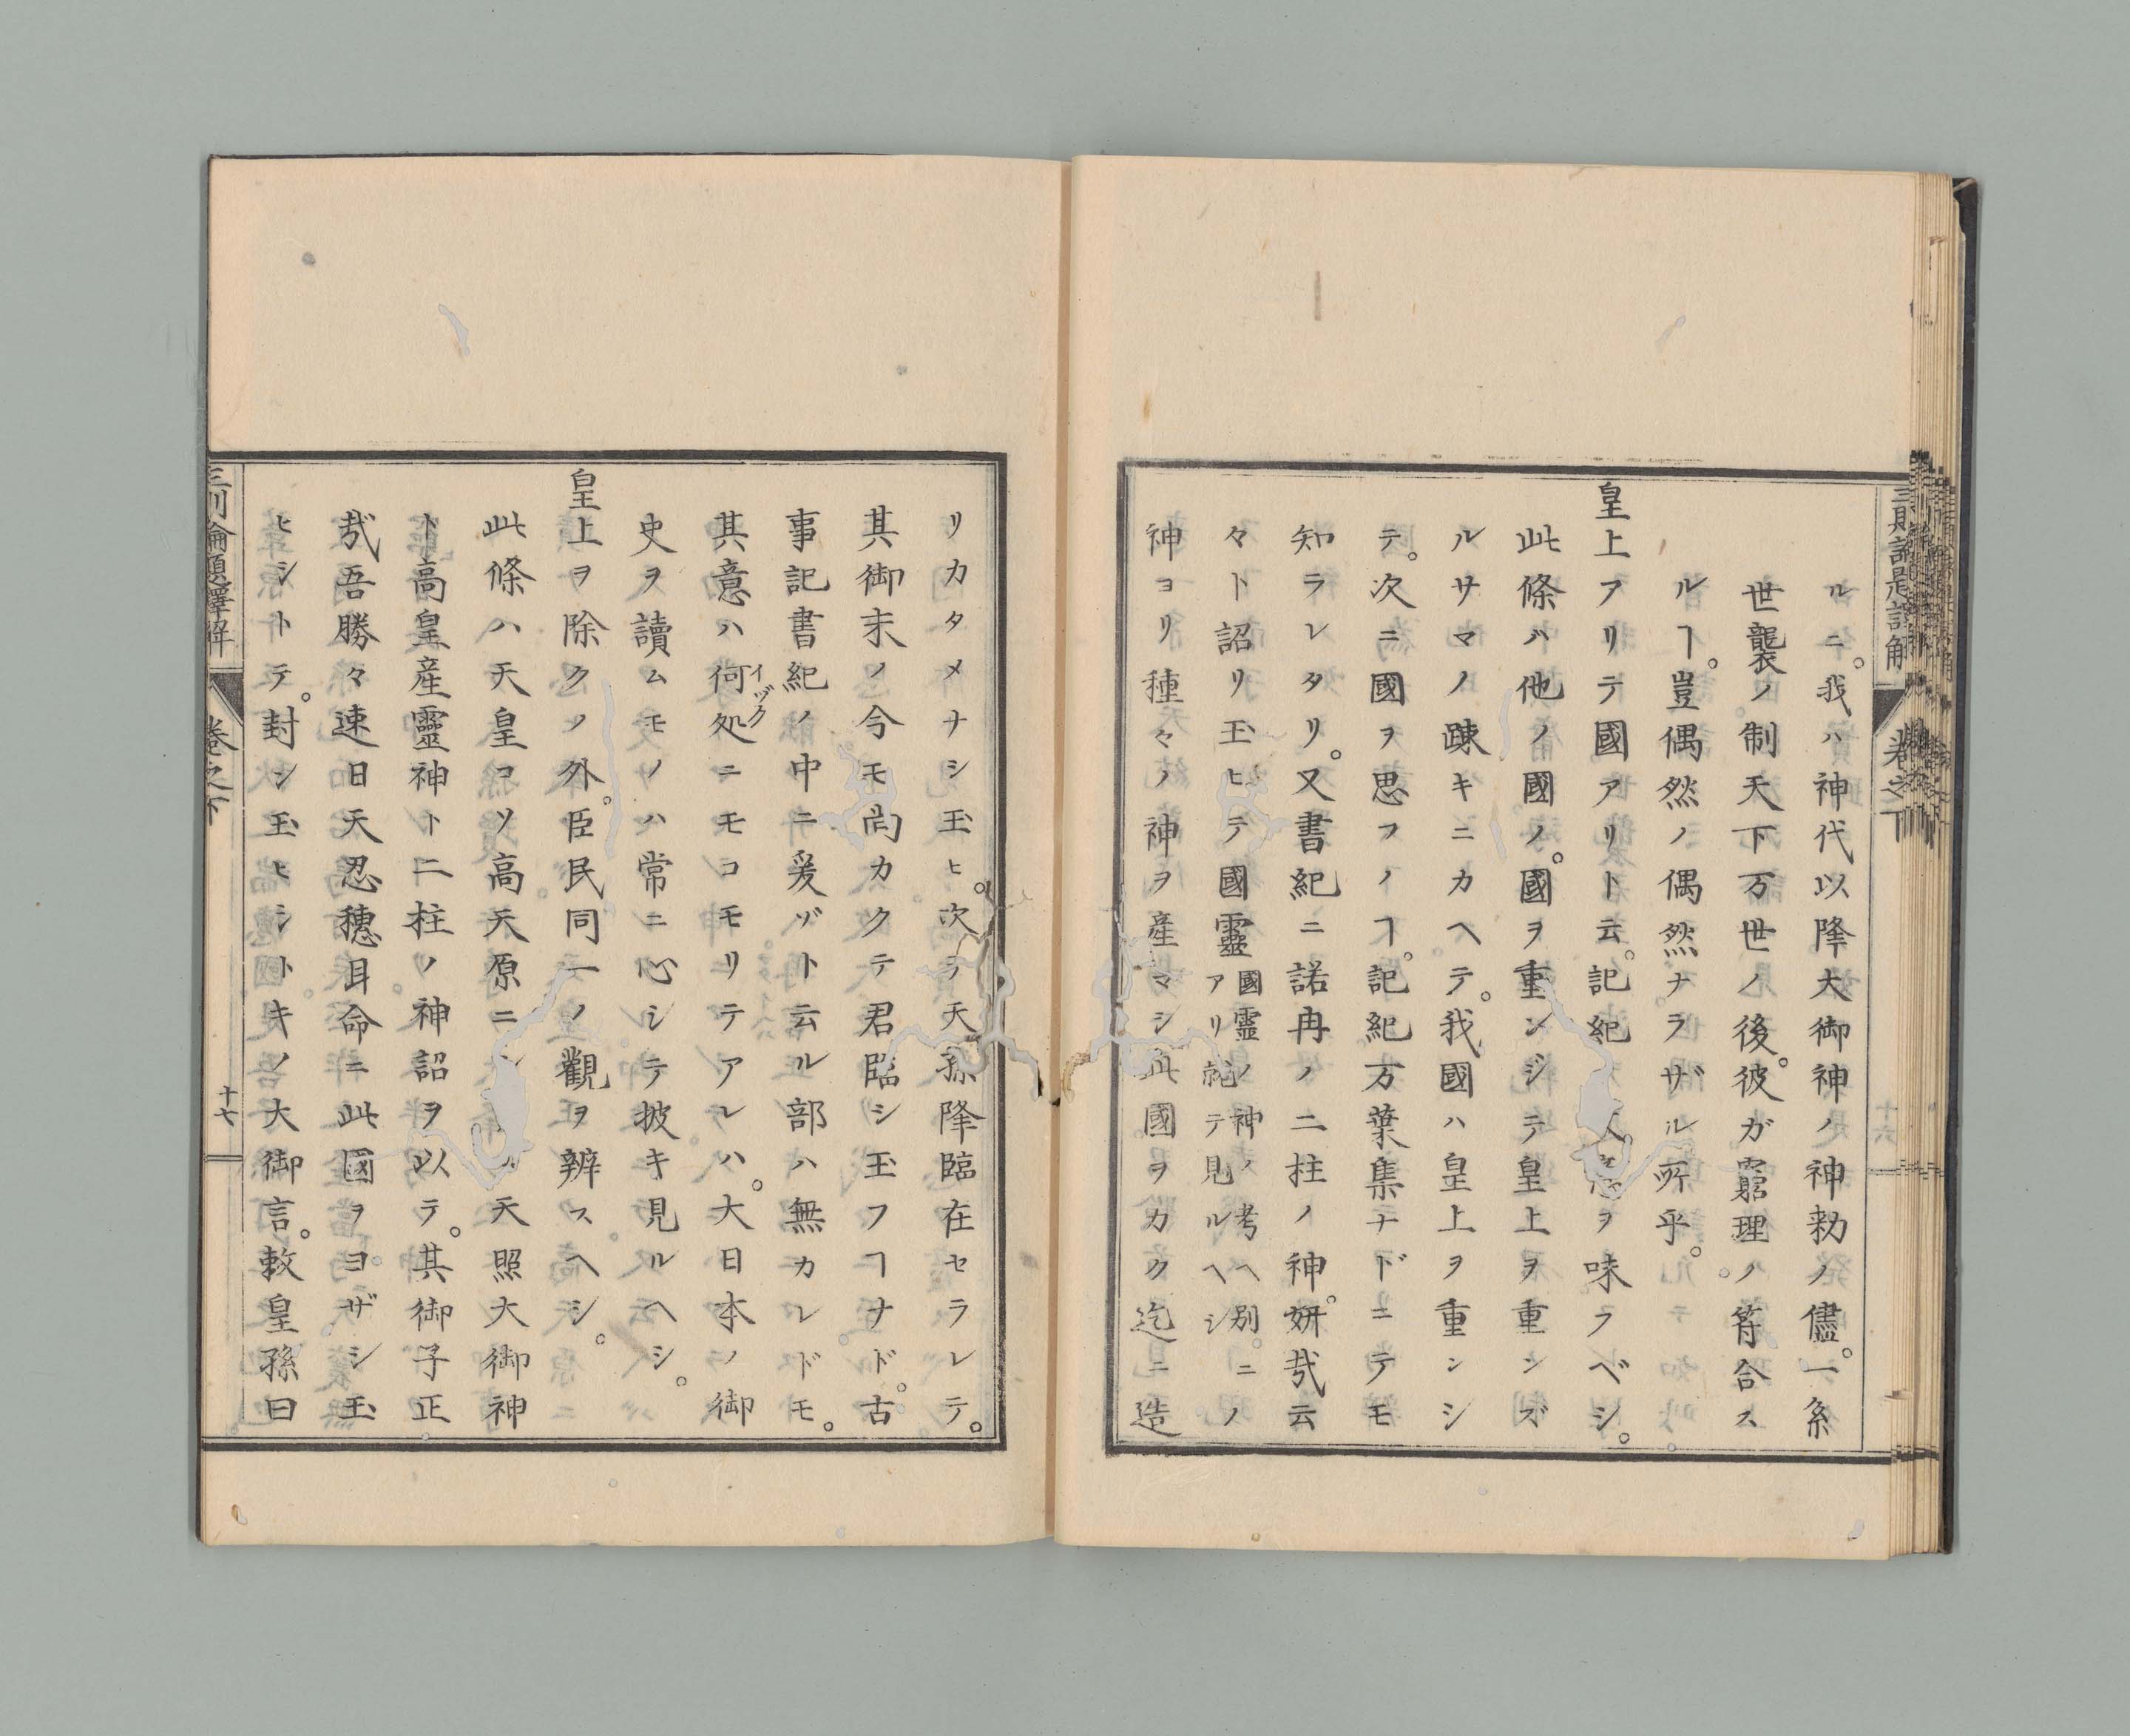 ルニ。我ハ神代以降大御神ノ神勅ノ儘。一系
世襲ノ制天下万世ノ後。彼ガ窮理ノ符合ス
ルヿ。豈偶然ノ偶然ナラザル所乎。
皇上アリテ國アリト云。記紀ノ ヲ味フベシ。
此條ハ他ノ國ノ。國ヲ重ンジテ皇上ヲ重ンズ
ルサマノ踈キニカヘテ。我國ハ皇上ヲ重ンシ
テ。次ニ國ヲ思フノヿ。記紀万葉集ナドニテモ
知ラレタリ。又書紀ニ諾冉ノ二柱ノ神。妍哉云
々ト詔リ玉ヒテ國靈國靈ノ神ノ考ヘ別。ニノアリ就テ見ルヘシ
神ヨリ種々ノ神ヲ産マシ此國ヲカク迄ニ造
リカタメナシ玉ヒ。次テ天孫降臨在セラレテ。
其御末ノ今モ尚カクテ君臨シ玉フヿナド。古
事記書紀ノ中ニ爰ゾト云ル部ハ無カレドモ。
其意ハ何処イヅクニモコモリテアレハ。大日本ノ御
史ヲ讀ムモノハ常ニ心シテ披キ見ルヘシ。
皇上ヲ除クノ外。臣民同一ノ觀ヲ辨スヘシ。
此條ハ天皇コソ高天原ニ 天照大御神
ト高皇産靈神ト二柱ノ神詔ヲ以テ。其御子正
哉吾勝々速日天忍穗耳命ニ此國ヲヨザシ玉
ヒシトテ。封シ玉ヒシトキノ大御言。敕皇孫曰
卷之下
十七